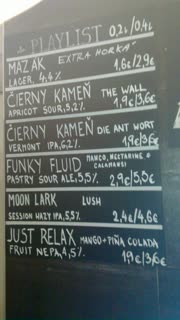 PLAYLIST 0,2L/0,4L
MAZÁK EXTRA HORKÁ
LAGER, 4,4% 1,6€/2,9€
ČIERNY KAMEŇ THE WALL
APRICOT SOUR, 5,2% 1,9€/3,6€
ČIERNY KAMEŇ DIE ANT WORT
VERMONT IPA, 6,2% 1,9€/3,6€
FUNKY FLUID MANGO, NECTARINE & CALAMANSI
PASTRY SOUR ALE, 5,5% 2,9€/5,5€
MOON LARK LUSH
SESSION HAZY IPA, 5,5% 2,4€/4,6€
JUST RELAX MANGO+PIÑA COLADA
FRUIT NEPA, 4,5% 1,9€/3,6€